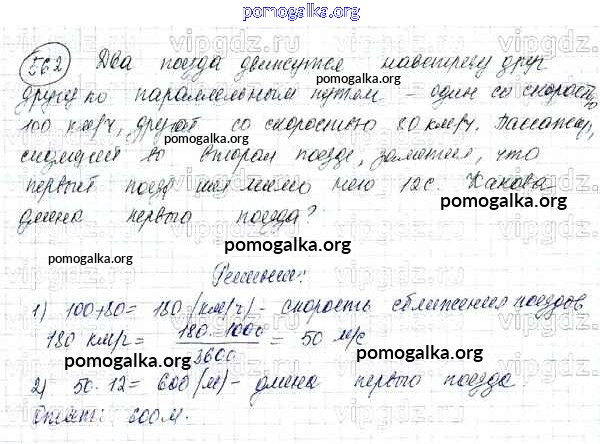 pomogalka.org
562 Два поезда движутся навстречу друг
pomogalka.org
другу по параллельным путям – один со скоростью
100 км/ч, другой со скоростью 80 км/ч. Пассажир,
pomogalka.org
сидящий во втором поезде, заметил, что
первый поезд шел мимо него 12 с. Какова
pomogalka.org
длина первого поезда?
pomogalka.org
Решение:
1) 100+80 = 180 (км/ч) – скорость сближения поездов
180 км/ч = 180·1000 / 3600 = 50 м/с
pomogalka.org pomogalka.org
2) 50 · 12 = 600 (м) – длина первого поезда
Ответ: 600 м.
pomogalka.org